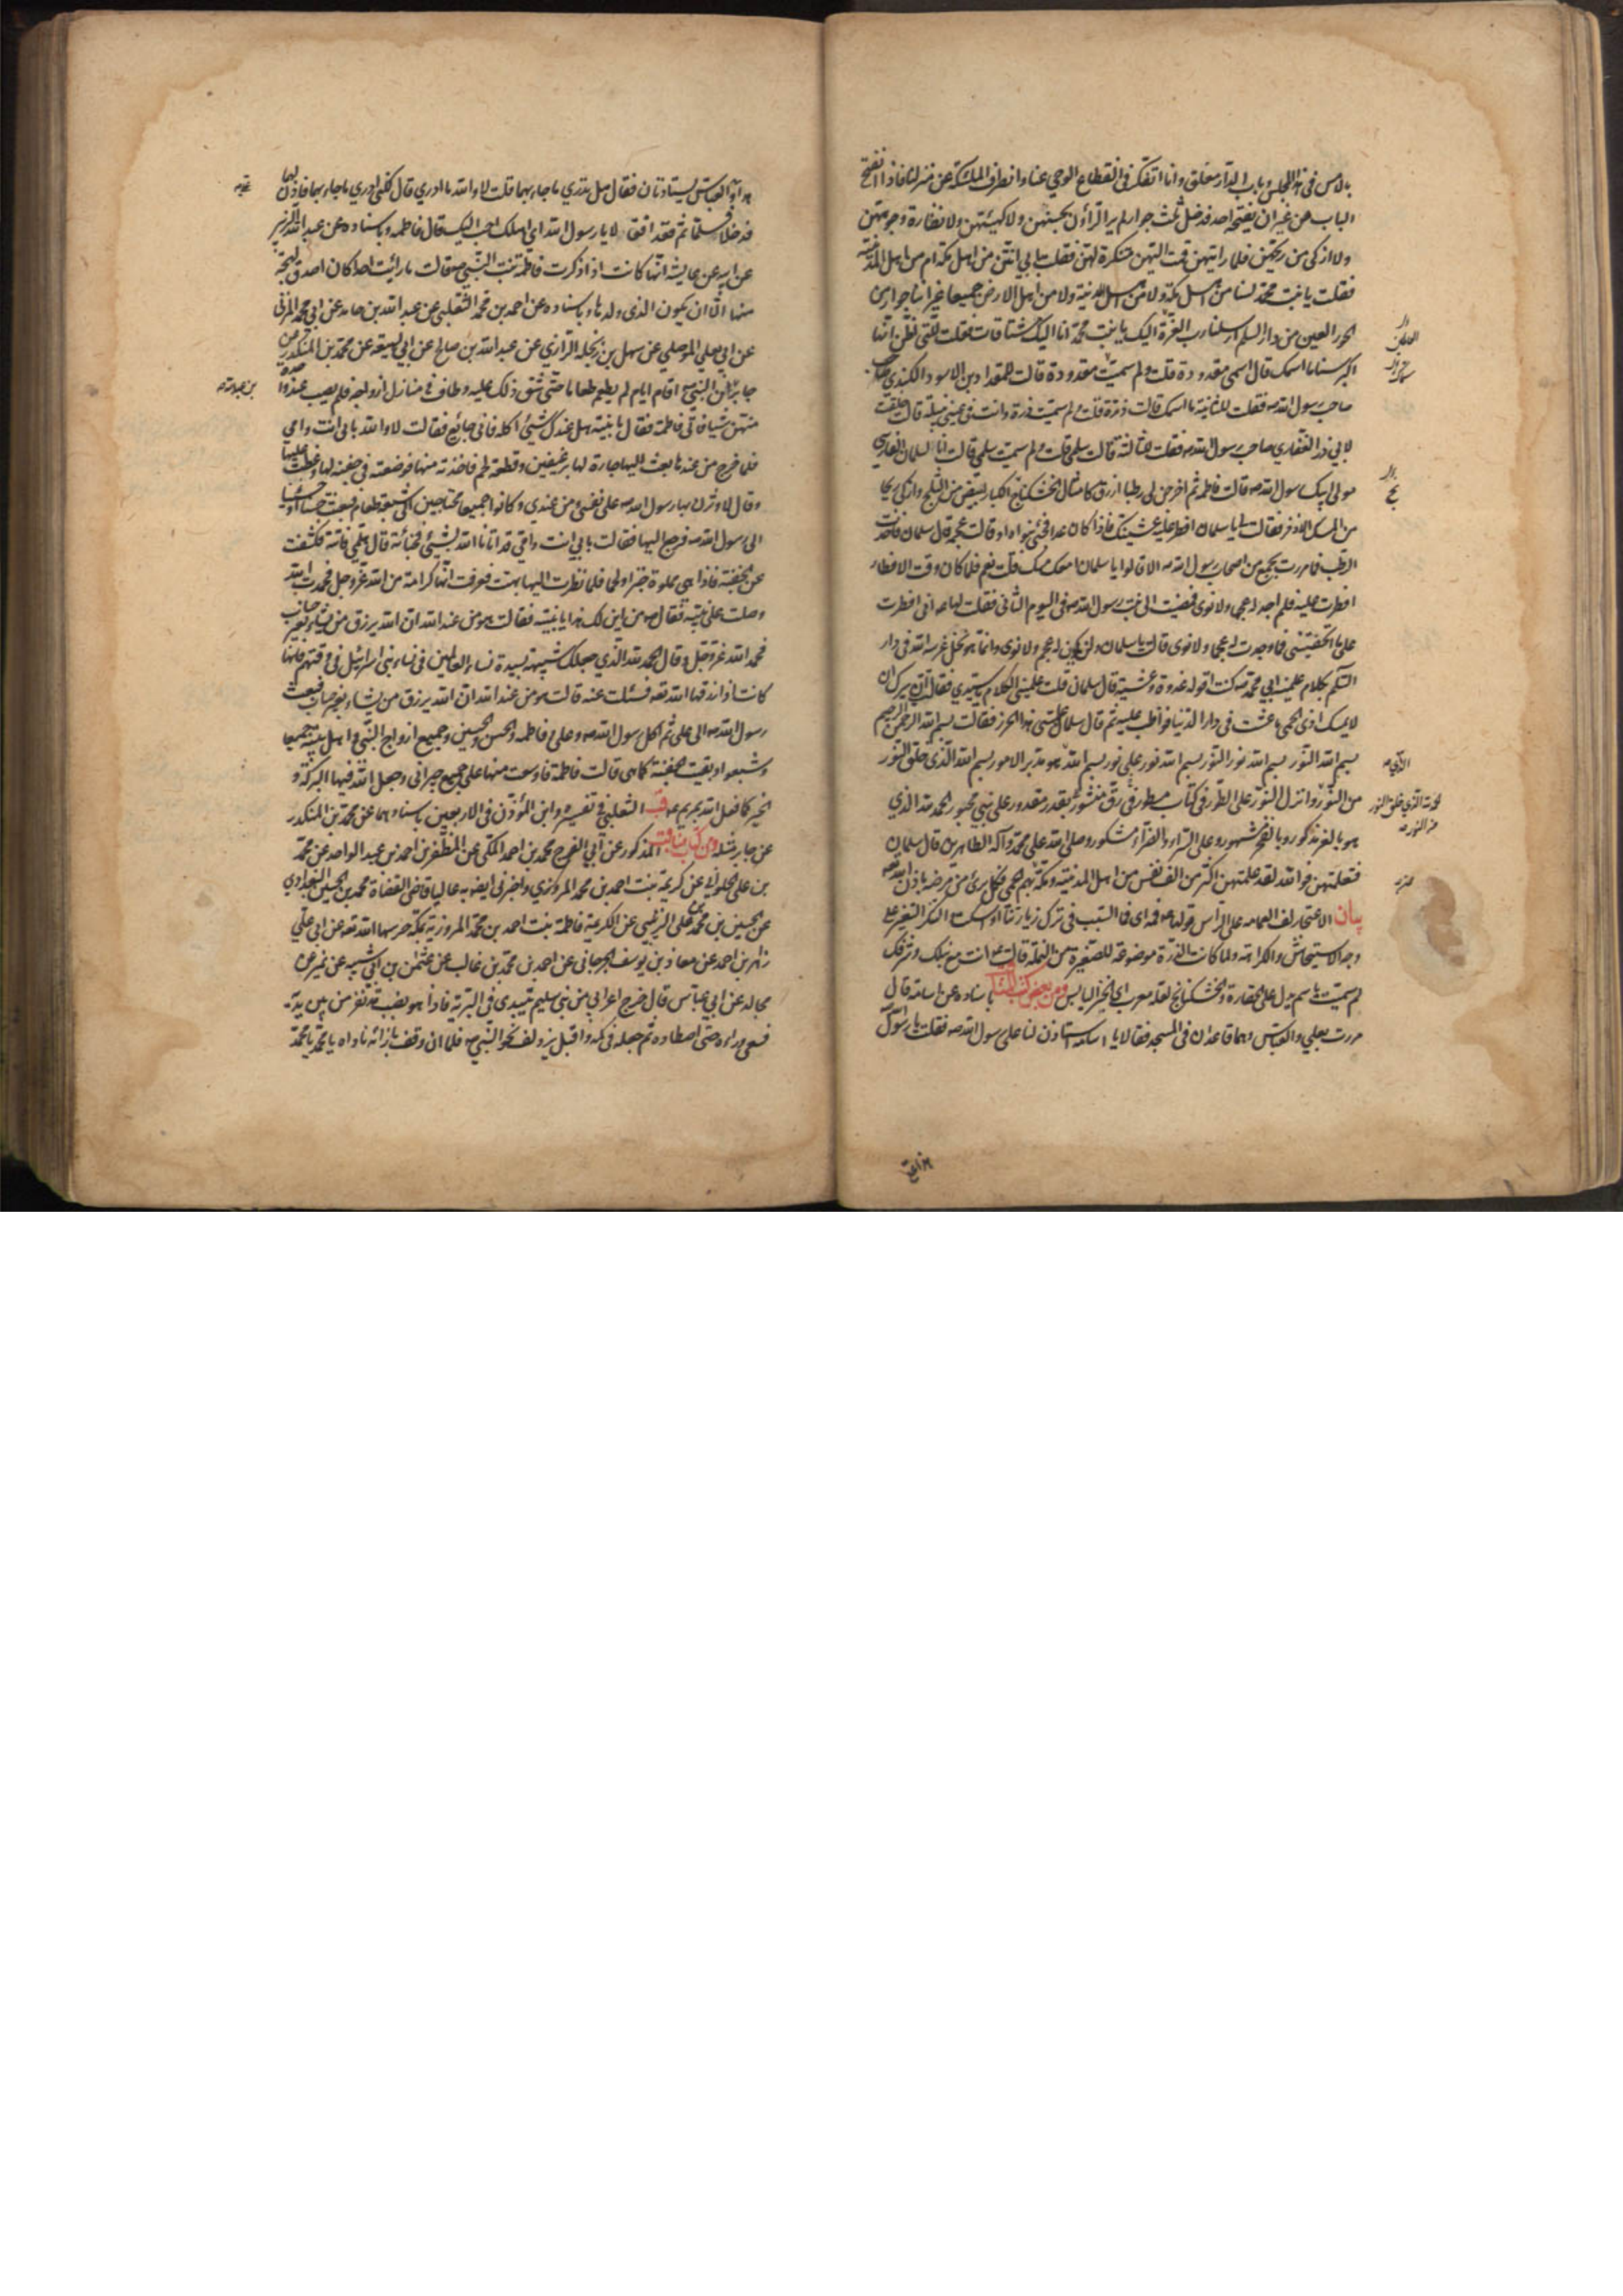 بالامس في هذا المجلس وباب الدار مغلق وانا اتفكر في انقطاع الوحي عنا وانصراف الملئكة عن منزلنا فاذا انفتح
الباب من غير ان يفتحه احد فدخل علي ثلث جوار لم ير الراؤن بحسنهن ولا كهيئتهن ولا نضارة وجوههن
ولا ازكى من ريحهن فلما رايتهن قمت اليهن متنكرة لهن فقلت بابي انتن من اهل مكة ام من اهل المدينة
فقلن يا بنت محمد لسنا من اهل مكة ولا من اهل المدينة ولا من اهل الارض جميعا غير اننا جوار من
الحور العين من دار السلم ارسلنا رب العزة اليك يا بنت محمد انا اليك مشتاقات فقلت للتي اظن انها
اكبر سنا ما اسمك قال اسمي مقدودة قلت ولم سميت مقدودة قالت خلقت للمقداد بن الاسود الكندي
صاحب رسول الله ص فقلت للثانية ما اسمك قالت ذرة قلت ولم سميت ذرة وانت في عيني نبيلة قالت خلقت
لابي ذر الغفاري صاحب رسول الله ص فقلت للثالثة ما اسمك قالت سلمى قلت ولم سميت سلمى قالت انا لسلمان الفارسي
مولى ابيك رسول الله ص قالت فاطمة ثم اخرجن لي رطبا ازرق كامثال الخشكنانج الكبار ابيض من الثلج وازكى ريحا
من المسك الاذفر فقالت لي يا سلمان افطر عليه عشيتك فاذا كان غدا فجئني بنواه او قالت عجمه قال سلمان فاخذت
الرطب فما مررت بجمع من اصحاب رسول الله ص الا قالوا يا سلمان امعك مسك قلت نعم فلما كان وقت الافطار
افطرت عليه فلم اجد له عجما ولا نوى فمضيت الى بنت رسول الله ص في اليوم الثاني فقلت لها ع اني افطرت
على ما اتحفتيني فما وجدت له عجما ولا نوى قالت يا سلمان ولن يكون له عجم ولا نوى وانما هو نخل غرسه الله في دار
السلم بكلام علمنيه ابي محمد ص كنت اقوله غدوة وعشية قال سلمان قلت علميني الكلام يا سيدتي فقالت ان سرك ان
لا يمسك اذى الحمى ما عشت في دار الدنيا فواظب عليه ثم قال سلمان علمتني هذا الحرز فقالت بسم الله الرحمن الرحيم
بسم الله النور بسم الله نور النور بسم الله نور على نور بسم الله الذي هو مدبر الامور بسم الله الذي خلق النور
من النور وانزل النور على الطور في كتاب مسطور في رق منشور بقدر مقدور على نبي محبور الحمد لله الذي
هو بالعز مذكور وبالفخر مشهور وعلى السراء والضراء مشكور وصلى الله على محمد وآله الطاهرين قال سلمان
فتعلمتهن فوالله لقد علمتهن اكثر من الف نفس من اهل المدينة ومكة ممن بهم الحمى فكل برئ من مرضه باذن الله تعه
بيان الاعتجار لف العمامه على الراس قولها ع فمه اي فما السبب في ترك زيارتنا او اسكت التنكر التغير على
وجه الاستيحاش والكراهة ولما كانت الذرة موضوعة للصغيرة من النملة قالت ع انت مع نبلك وشرفك
لم سميت باسم يدل على الحقارة والخشكنانج لعله معرب اي الخبز اليابس ومن بعض كتب المناقب باسناده عن اسامة قال
مررت بعلي والعباس وهما قاعدان في المسجد فقالا يا اسامة استاذن لنا على رسول الله ص فقلت يا رسول الله
هذا علي
هذا والعباس يستاذنان فقال هل تدري ما جاء بهما قلت لا والله ما ادري قال لكني ادري ما جاء بهما فاذن لهما
فدخلا فسلما ثم قعدا فقالا يا رسول الله اي اهلك احب اليك قال فاطمه وباسناده عن عبد الله بن الزبير
عن ابيه عن عايشه انها كانت اذا ذكرت فاطمة بنت النبي ص قالت ما رايت احدا كان اصدق لهجة
منها الا ان يكون الذي ولدها وباسناده عن احمد بن محمد الثعلبي عن عبد الله بن حامد عن ابي محمد المزني
عن ابي يعلي الموصلي عن سهل بن زنجله الرازي عن عبد الله بن صالح عن ابي لهيعه عن محمد بن المنكدر عن
جابر ان النبي ص اقام ايام لم يطعم طعاما حتى شق ذلك عليه وطاف في منازل ازواجه فلم يصب عند واحدة
منهن شيئا فاتى فاطمة فقال يا بنية هل عندك شيئ اكله فاني جائع فقالت لا والله بابي انت وامي
فلما خرج من عندها بعث اليها جارة لها برغيفين وقطعة لحم فاخذته منها فوضعته في جفنة لها وغطت عليها
وقال لاوثرن بها رسول الله ص على نفسي ومن عندي وكانوا جميعا محتاجين الى شبعة طعام فبعثت حسنا او حسينا
الى رسول الله ص فرجع اليها فقالت بابي انت وامي قد اتانا الله بشيئ فخبأته قال هلمي فاتته فكشفت
عن الجفنة فاذا هي مملوة خبزا ولحما فلما نظرت اليها بهتت فعرفت انها كرامة من الله عز وجل فحمدت الله
وصلت على نبيه فقال ص من اين لك هذا يا بنية فقالت هو من عند الله ان الله يرزق من يشاء بغير حساب
فحمد الله عز وجل وقال الحمد لله الذي جعلك شبيهة بسيدة نساء العالمين في نساء بني اسرائيل في وقتهم فانها
كانت اذا رزقها الله تعه فسئلت عنه قالت هو من عند الله ان الله يرزق من يشاء بغير حساب فبعث
رسول الله ص الى علي ثم اكل رسول الله ص وعلي وفاطمه والحسن والحسين وجميع ازواج النبي واهل بيته جميعا
وشبعوا وبقيت الجفنة كما هي قالت فاطمة فاوسعت منها على جميع جيراني وجعل الله فيها البركة و
الخير كما فعل الله بمريم ع قب الثعلبي في تفسيره وابن المؤذن في الاربعين باسنادهما عن محمد بن المنكدر
عن جابر مثله ومن كتاب مناقب المذكور عن ابي الفرج محمد بن احمد المكي عن المظفر بن احمد بن عبد الواحد عن محمد
بن علي الحلواني عن كريمة بنت احمد بن محمد المروزي واخبرني ايضا به عاليا قاضي القضاة محمد بن الحسين البغدادي
عن الحسين بن محمد بن علي الزينبي عن الكريمة فاطمة بنت احمد بن محمد المروزية بمكة حرسها الله تعه عن ابي علي
زاهر بن احمد عن معاذ بن يوسف الجرجاني عن احمد بن محمد بن غالب عن عثمن بن ابي شيبه عن نمير عن
مجالد عن ابن عباس قال خرج اعرابي من بني سليم يتبدى في البرية فاذا هو بضب قد نفر من بين يديه
فسعى وراءه حتى اصطاده ثم جعله في كمه واقبل يزدلف نحو النبي ص فلما ان وقف بازائه ناداه يا محمد يا محمد